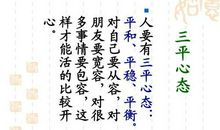 三平心态
人要有三平心态：
平和、平稳、平衡。
对自己要从容，对
朋友要宽容，对很
多事情要包容，这
样才能活的比较开
心。